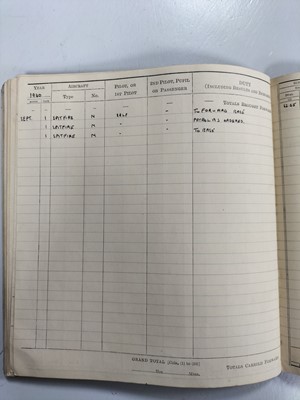 YEAR AIRCRAFT PILOT, OR 2ND PILOT, PUPIL DUTY
1940 Type No. 1ST PILOT OR PASSENGER (INCLUDING RESULTS AND
— — — — — — — TOTALS BROUGHT FORWARD
SEPT 1 SPITFIRE N SELF — TO FORWARD BASE
1 SPITFIRE N " — PATROL AS ORDERED
1 SPITFIRE N " — TO BASE
GRAND TOTAL [Cols. (1) to (10)] TOTALS CARRIED FORWARD
Hrs. Mins.